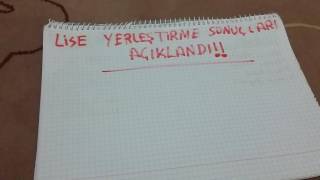 LiSE YERLEŞTİRME SONUÇLARI
AÇIKLANDI!!